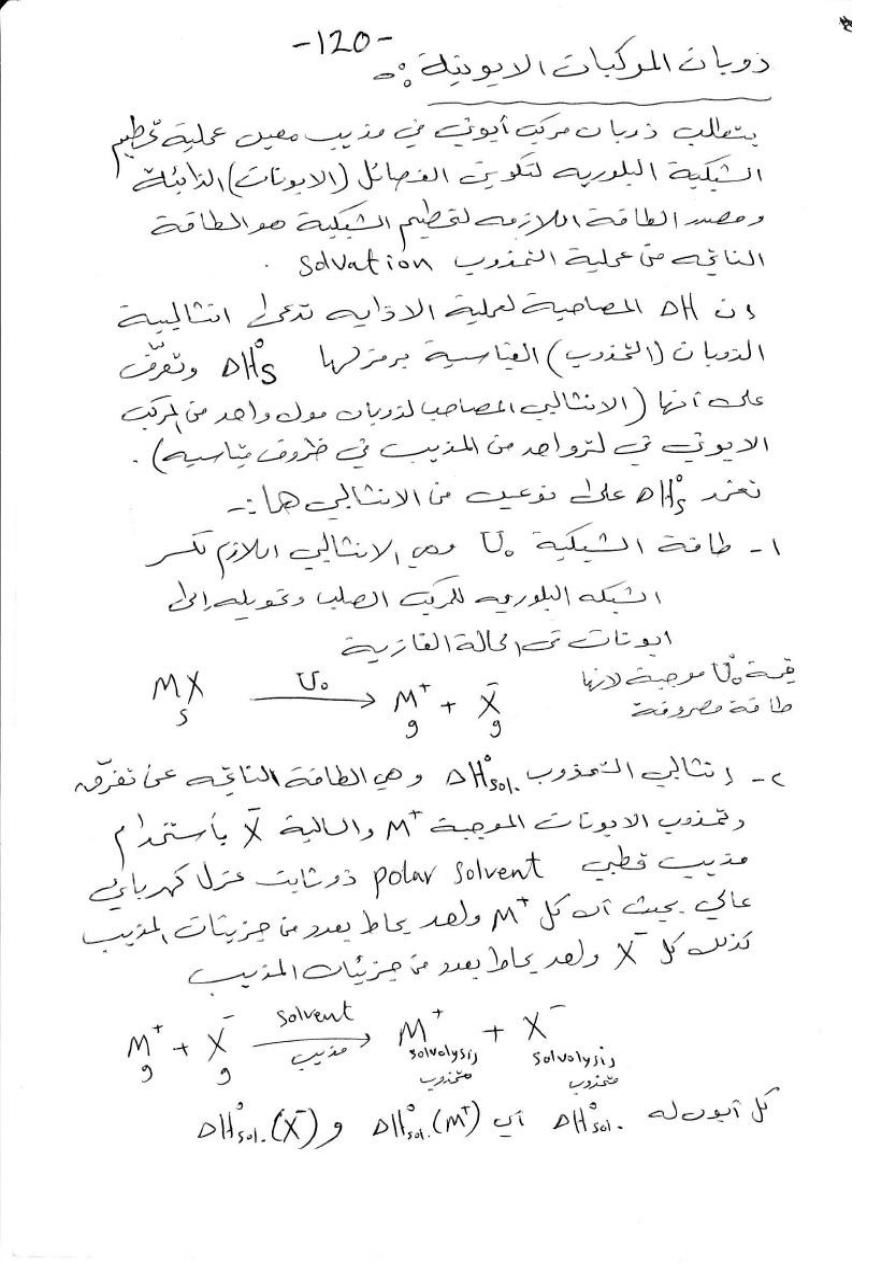 -120-
ذوبان المركبات الايونية :-
يتطلب ذوبان مركب أيوني في مذيب معين عملية تحطيم
الشبكية البلوريه لتكوين الفصائل (الايونات) الذائبة
ومصدر الطاقة اللازمه لتحطيم الشبكية هو الطاقة
الناتجه من عملية التمذوب Solvation .
ان ΔH المصاحبة لعملية الاذابه تدعى انثالبية
الذوبان (التمذوب) القياسية يرمز لها ΔH°s وتعرّف
على أنها (الانثالبي المصاحب لذوبان مول واحد من المركب
الايوني في لتر واحد من المذيب في ظروف قياسيه) .
تعتمد ΔH°s على نوعين من الانثالبي هما :-
١- طاقة الشبكية U₀ وهي الانثالبي اللازم لكسر
الشبكه البلوريه للمركب الصلب وتحويله إلى
ايونات في الحالة الغازية
قيمة U₀ موجبة لانها
طاقة مصروفة
MX s —U₀→ M⁺ g + X⁻ g
٢- انثالبي التمذوب ΔH°sol. وهي الطاقة الناتجه عن تفرّق
وتمذوب الايونات الموجبة M⁺ والسالبة X⁻ بأستخدام
مذيب قطبي polar solvent ذو ثابت عزل كهربائي
عالي بحيث أن كل M⁺ واحد يحاط بعدد من جزيئات المذيب
كذلك كل X⁻ واحد يحاط بعدد من جزيئات المذيب
M⁺ g + X⁻ g —solvent مذيب→ M⁺ solvolysis متمذوب + X⁻ solvolysis متمذوب
كل أيون له ΔH°sol. أي ΔH°sol.(M⁺) و ΔH°sol.(X⁻)